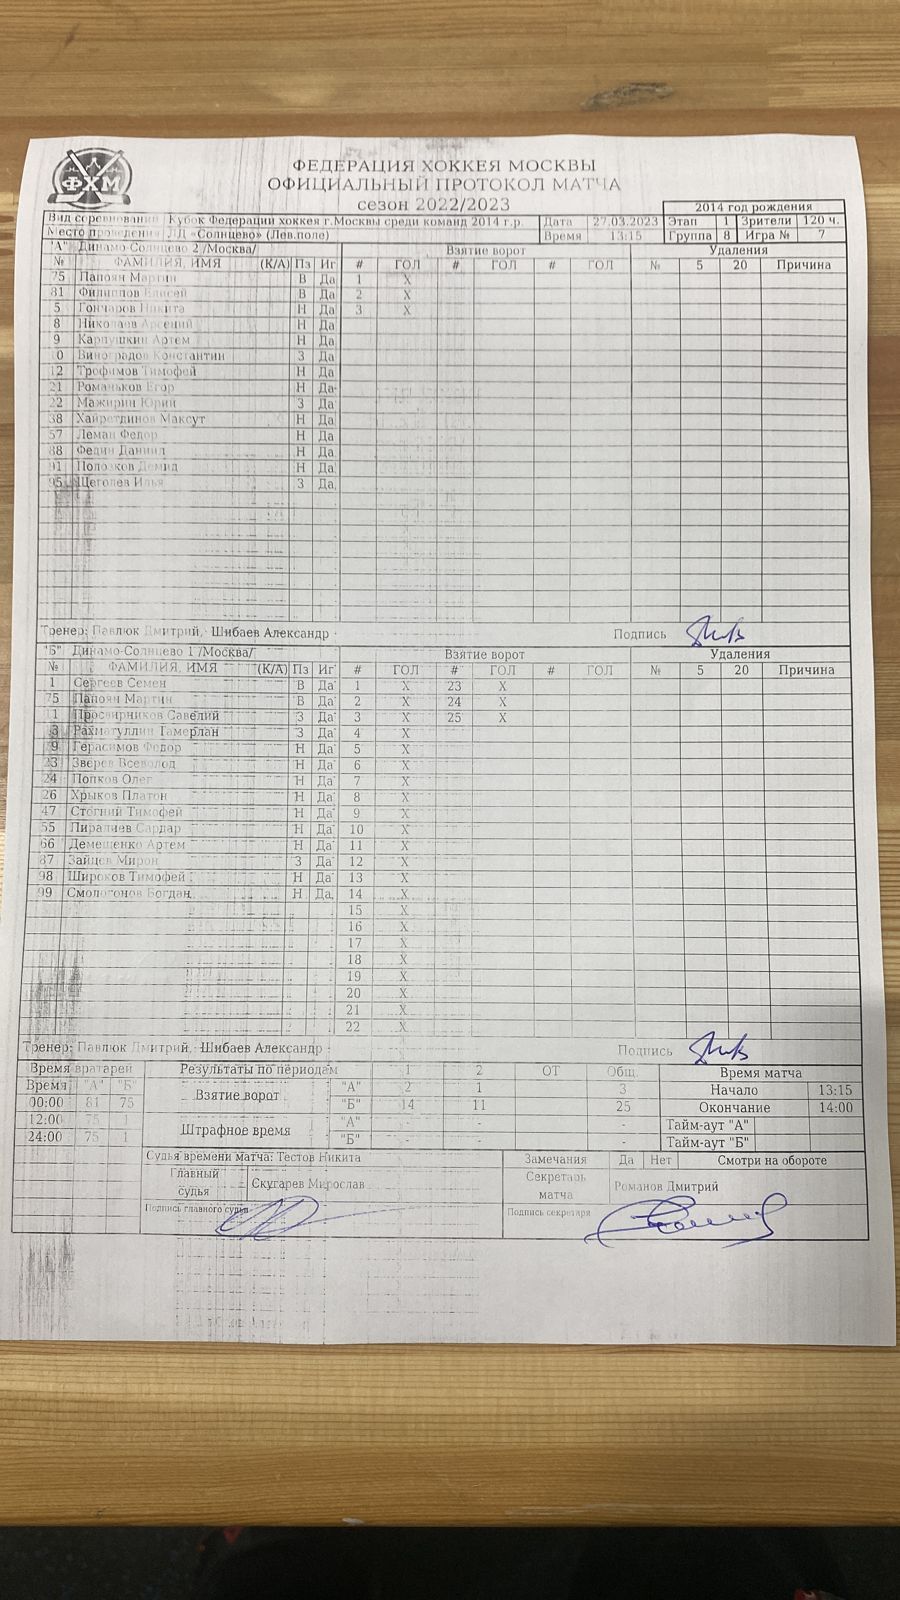 ФХМ
ФЕДЕРАЦИЯ ХОККЕЯ МОСКВЫ
ОФИЦИАЛЬНЫЙ ПРОТОКОЛ МАТЧА
сезон 2022/2023
2014 год рождения
Вид соревнований Кубок Федерации хоккея г.Москвы среди команд 2014 г.р. Дата 27.03.2023 Этап 1 Зрители 120 ч.
Место проведения ЛД «Солнцево» (Лев.поле) Время 13:15 Группа 8 Игра № 7
"А" Динамо-Солнцево 2 /Москва/ Взятие ворот Удаления
№ ФАМИЛИЯ, ИМЯ (К/А) Пз Иг # ГОЛ # ГОЛ # ГОЛ № 5 20 Причина
75 Папоян Мартин В Да 1 X
81 Филиппов Елисей В Да 2 X
5 Гончаров Никита Н Да 3 X
8 Николаев Арсений Н Да
9 Карпушкин Артем Н Да
Виноградов Константин З Да
12 Трофимов Тимофей Н Да
21 Романьков Егор Н Да
22 Мажирин Юрий З Да
38 Хайретдинов Максут Н Да
57 Леман Федор Н Да
88 Федин Даниил Н Да
91 Полозков Демид Н Да
95 Щеголев Илья З Да
Тренер: Павлюк Дмитрий, Шибаев Александр Подпись
"Б" Динамо-Солнцево 1 /Москва/ Взятие ворот Удаления
№ ФАМИЛИЯ, ИМЯ (К/А) Пз Иг # ГОЛ # ГОЛ # ГОЛ № 5 20 Причина
1 Сергеев Семен В Да 1 X 23 X
75 Папоян Мартин В Да 2 X 24 X
1 Просвирников Савелий З Да 3 X 25 X
3 Рахматуллин Тамерлан З Да 4 X
9 Герасимов Федор Н Да 5 X
23 Зверев Всеволод Н Да 6 X
24 Попков Олег Н Да 7 X
26 Хрыков Платон Н Да 8 X
47 Стогний Тимофей Н Да 9 X
55 Пиралиев Сардар Н Да 10 X
66 Демещенко Артем Н Да 11 X
87 Зайцев Мирон З Да 12 X
98 Широков Тимофей Н Да 13 X
99 Смологонов Богдан Н Да 14 X
15 X
16 X
17 X
18 X
19 X
20 X
21 X
22 X
Тренер: Павлюк Дмитрий, Шибаев Александр Подпись
Время вратарей Результаты по периодам 1 2 ОТ Общ. Время матча
Время "А" "Б" Взятие ворот "А" 2 1 3 Начало 13:15
00:00 81 75 "Б" 14 11 25 Окончание 14:00
12:00 75 1 Штрафное время "А" - - - Тайм-аут "А"
24:00 75 1 "Б" - - - Тайм-аут "Б"
Судья времени матча: Тестов Никита Замечания Да Нет Смотри на обороте
Главный судья Скугарев Мирослав Секретарь матча Романов Дмитрий
Подпись главного судьи Подпись секретаря